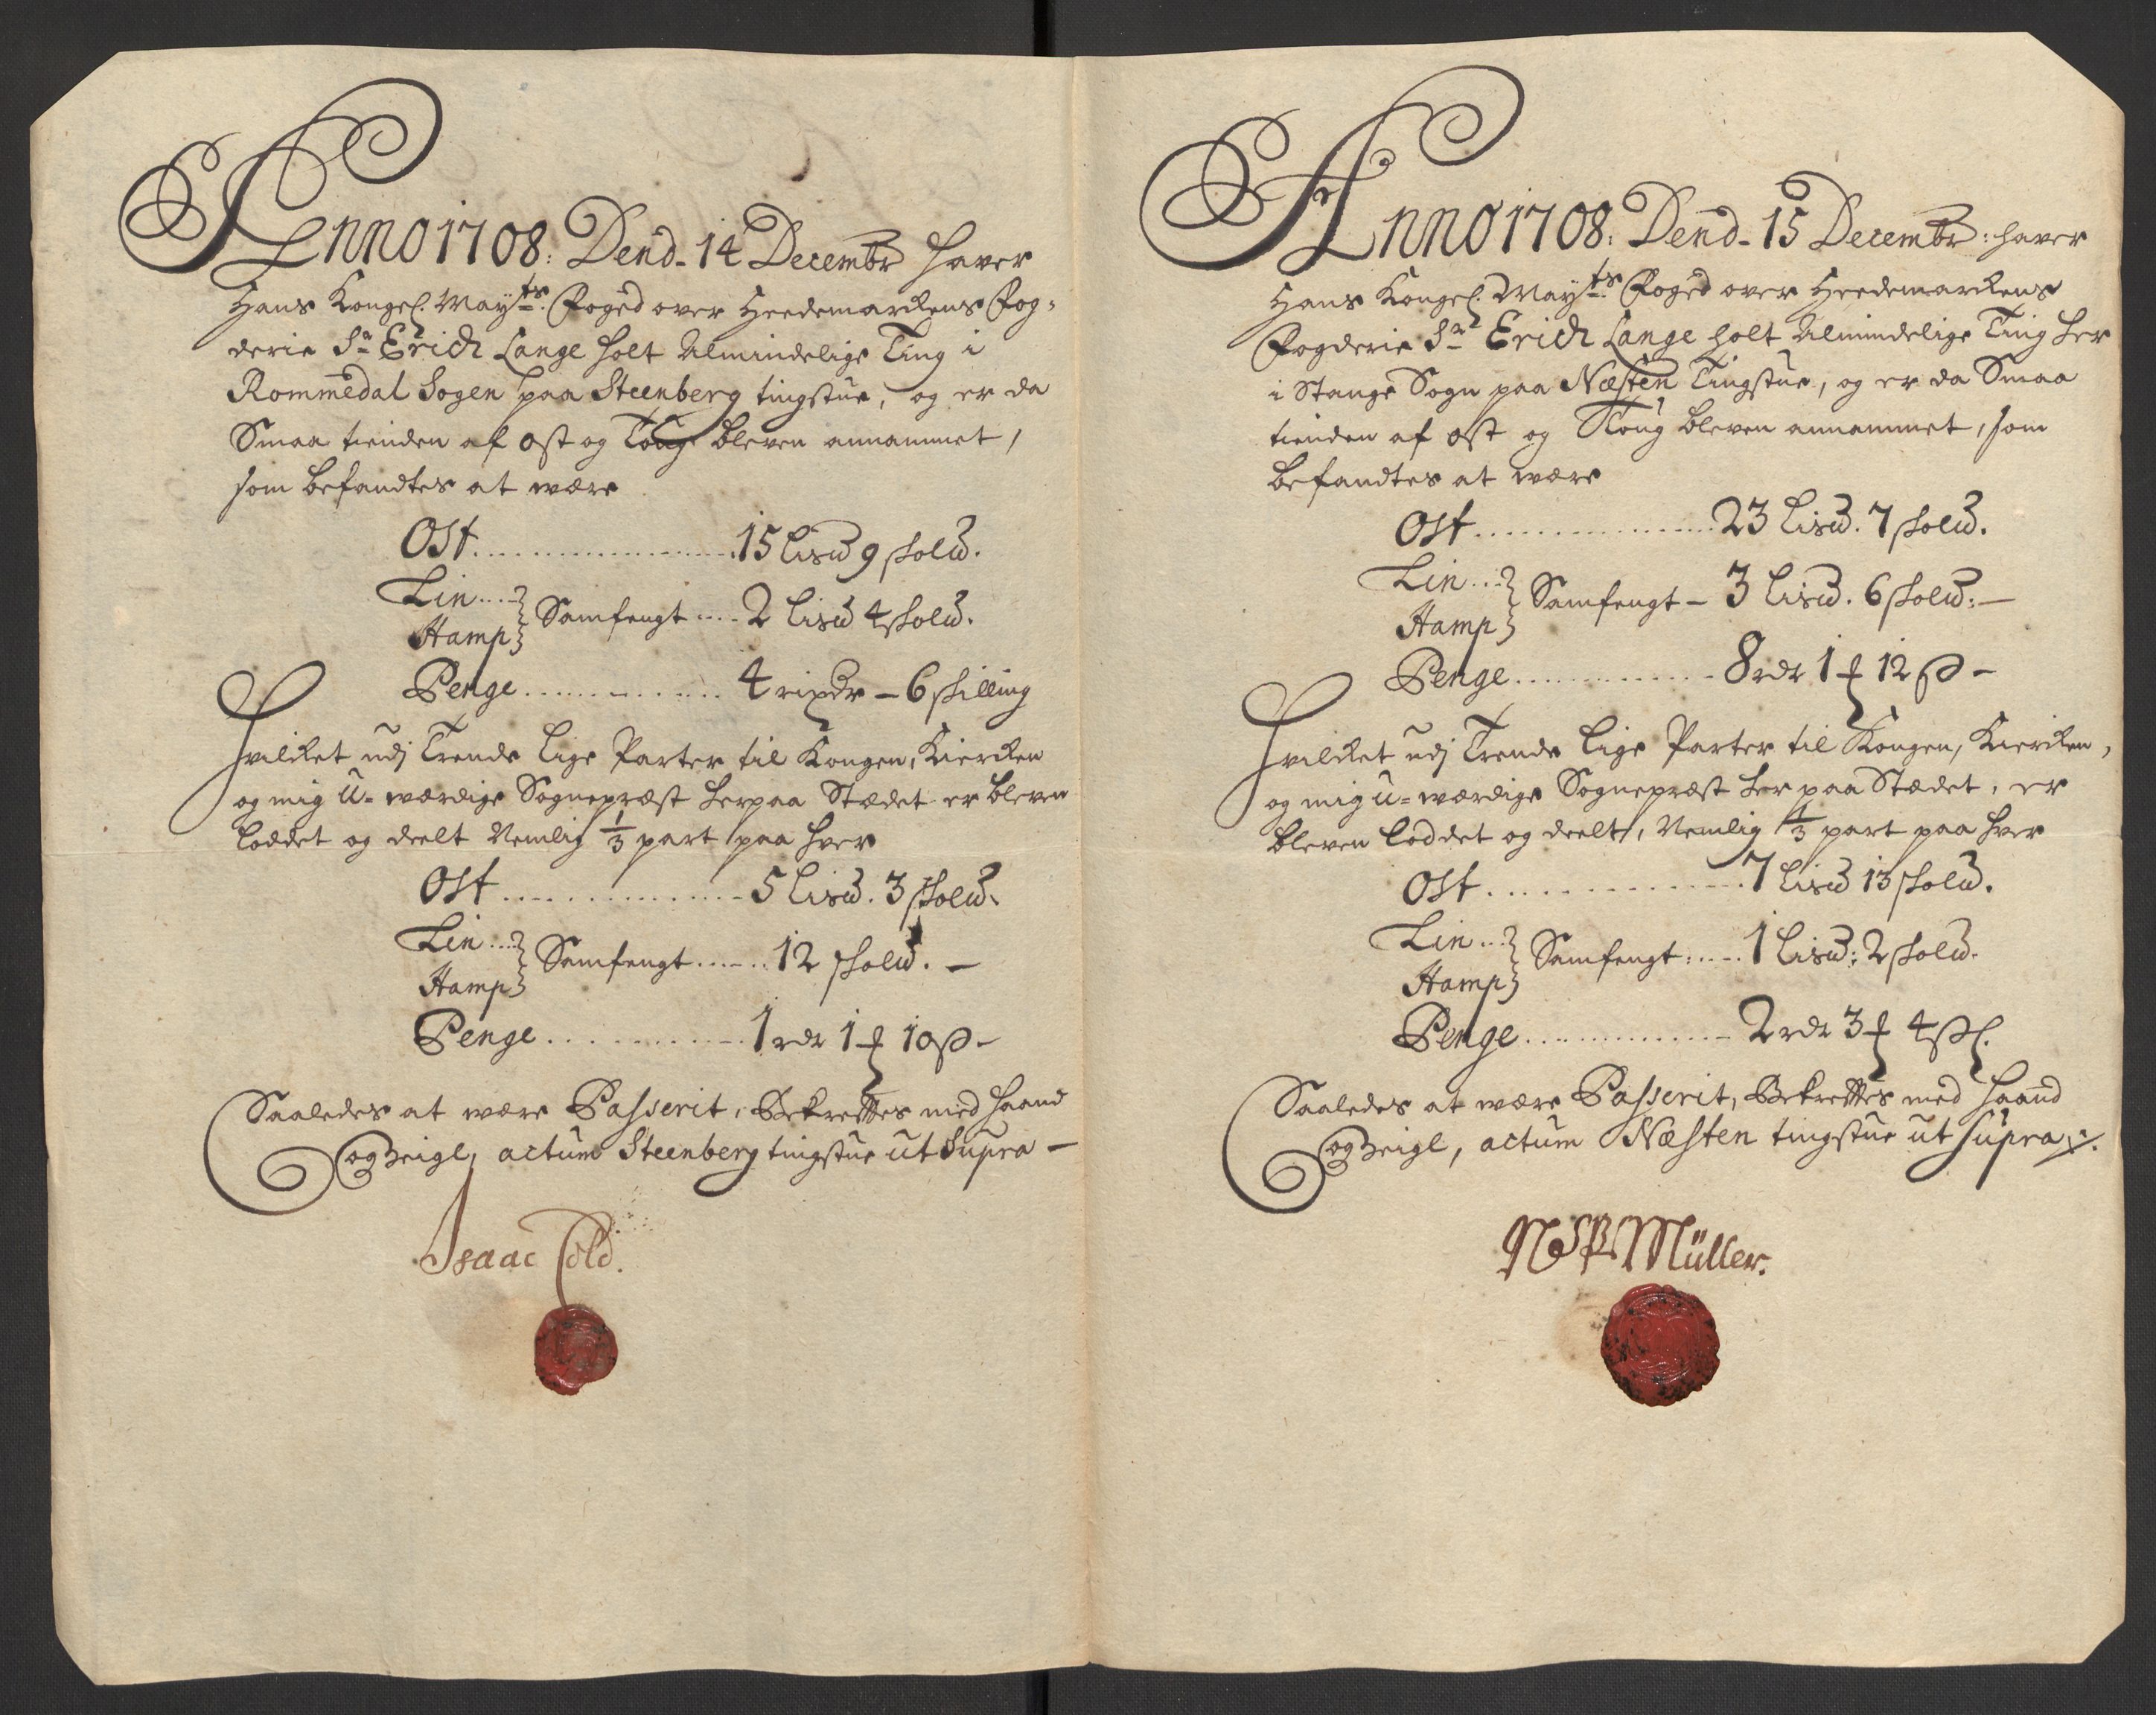 Anno 1708. Dend. 14 Decembr haver
Hans Kongel. Mayts. Foged over Heedemarckens Fog=
derie Sr. Erich Lange holt Almindelige Ting i
Rommedal Sogen paa Steenberg tingstue, og er da
Smaa tienden af Ost og Toug bleven annammet,
som befandtes at være
Ost ........ 15 Lisu 9 skolu.
Lin ... } Samfengt .... 2 Lisu 4 skolu.
Hamp }
Penge ........ 4 rixdr – 6 skilling
Hvilcket udj Trende Lige Parter til Kongen, Kiercken
og mig U-værdige Sognepræst her paa Stædet er bleven
loddet og deelt Nemlig 1/3 part paa hver
Ost ........ 5 Lisu. 3 skolu.
Lin ... } Samfengt ...... 12 skolu. –
Hamp }
Penge ........ 1 rdr 1 ƒ 10 ß –
Saaledes at være Passerit, Bekreftes med Haand
og Zeigl, actum Steenberg tingstue ut Supra –
Isaac Cold.
Anno 1708. Dend. 15 Decembr: haver
Hans Kongel. Mayts. Foged over Heedemarckens
Fogderie Sr. Erich Lange holt Almindelige Ting her
i Stange Sogn paa Næsten Tingstue, og er da Smaa
tienden af Ost og Toug bleven annammet, som
befandtes at være
Ost ........ 23 Lisu. 7 skolu.
Lin ... } Samfengt – 3 Lisu. 6 skolu: –
Hamp }
Penge ........ 8 rdr 1 ƒ 12 ß –
Hvilcket udj Trende Lige Parter til Kongen, Kiercken,
og mig U=værdige Sognepræst her paa Stædet, er
bleven loddet og deelt, Nemlig 1/3 part paa hver
Ost ........ 7 Lisu 13 skolu.
Lin ... } Samfengt: .... 1 Lisu: 2 skolu.
Hamp }
Penge ........ 2 rdr 3 ƒ 4 ßl.
Saaledes at være Passerit, Bekreftes med Haand
og Zeigl, actum Næsten tingstue ut supra ./.
Müller.